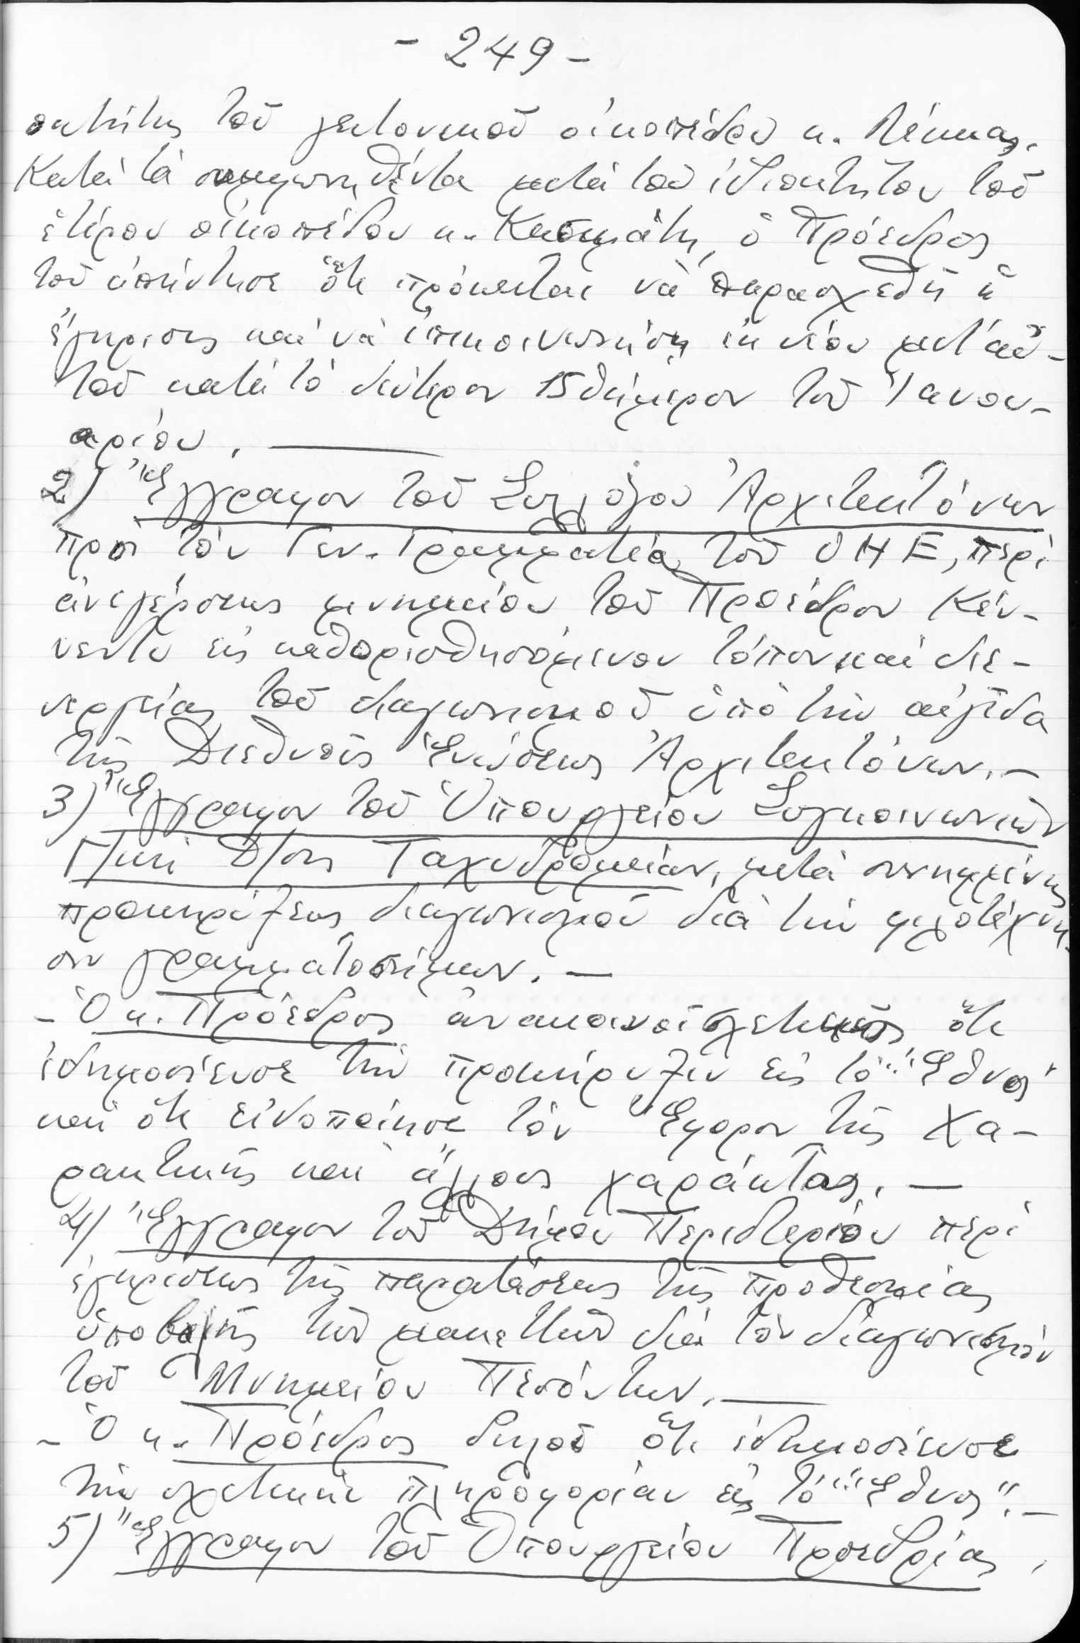 - 249 -
οκτήτης τοῦ γειτονικοῦ οἰκοπέδου κ. Λέκκας.
Κατά τά συμφωνηθέντα μετά τοῦ ἰδιοκτήτου τοῦ
ἑτέρου οἰκοπέδου κ. Κασιμάτη, ὁ Πρόεδρος
τοῦ ἀπήντησε ὅτι πρόκειται νά παρασχεθῆ ἡ
ἔγκρισις καί νά ἐπικοινωνήση ἐκ νέου μετ' αὐ-
τοῦ κατά τό δεύτερον 15θήμερον τοῦ Ἰανου-
αρίου. —
2) Ἔγγραφον τοῦ Συλλόγου Ἀρχιτεκτόνων
πρός τόν Γεν. Γραμματέα τοῦ ΟΗΕ, περί
ἀνεγέρσεως μνημείου τοῦ Προέδρου Κέν-
νεντυ εἰς καθορισθησόμενον τόπον καί διε-
νεργείας τοῦ διαγωνισμοῦ ὑπό τήν αἰγίδα
τῆς Διεθνοῦς Ἑνώσεως Ἀρχιτεκτόνων. —
3) Ἔγγραφον τοῦ Ὑπουργείου Συγκοινωνιῶν
Γ/κή Δ/σις Ταχυδρομείων, μετά συνημμένης
προκηρύξεως διαγωνισμοῦ διά τήν φιλοτέχνη-
σιν γραμματοσήμων. —
- Ὁ κ. Πρόεδρος ἀνακοινοῖ σχετικῶς ὅτι
ἐδημοσίευσε τήν προκήρυξιν εἰς τό "Ἔθνος"
καί ὅτι εἰδοποίησε τόν Ἔφορον τῆς Χα-
ρακτικῆς καί ἄλλους χαράκτας. —
4) Ἔγγραφον τοῦ Δήμου Περιστερίου περί
ἐγκρίσεως τῆς παρατάσεως τῆς προθεσμίας
ὑποβολῆς τῶν μακεττῶν διά τόν διαγωνισμόν
τοῦ Μνημείου Πεσόντων. —
- Ὁ κ. Πρόεδρος δηλοῖ ὅτι ἐδημοσίευσε
τήν σχετικήν πληροφορίαν εἰς τό "Ἔθνος". —
5) Ἔγγραφον τοῦ Ὑπουργείου Προεδρίας,